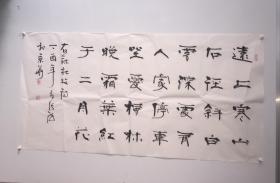 遠上寒山
石徑斜白
雲深處有
人家停車
坐愛楓林
晚霜葉紅
于二月花
杜牧詩
丁酉年